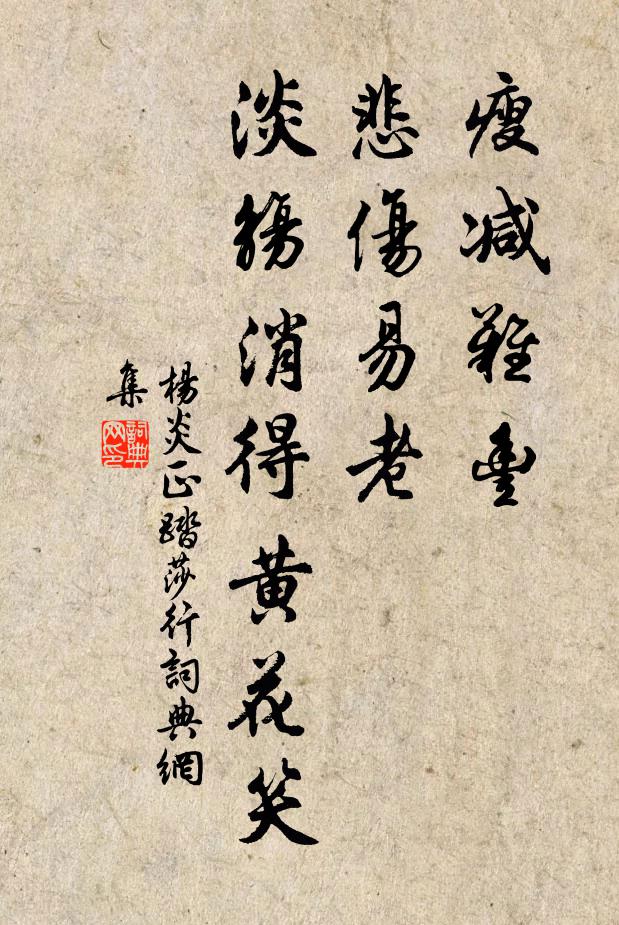 瘦減難豐
悲傷易老
淡觴消得黄花笑
楊炎正踏莎行詞典網
集
詞典
网印